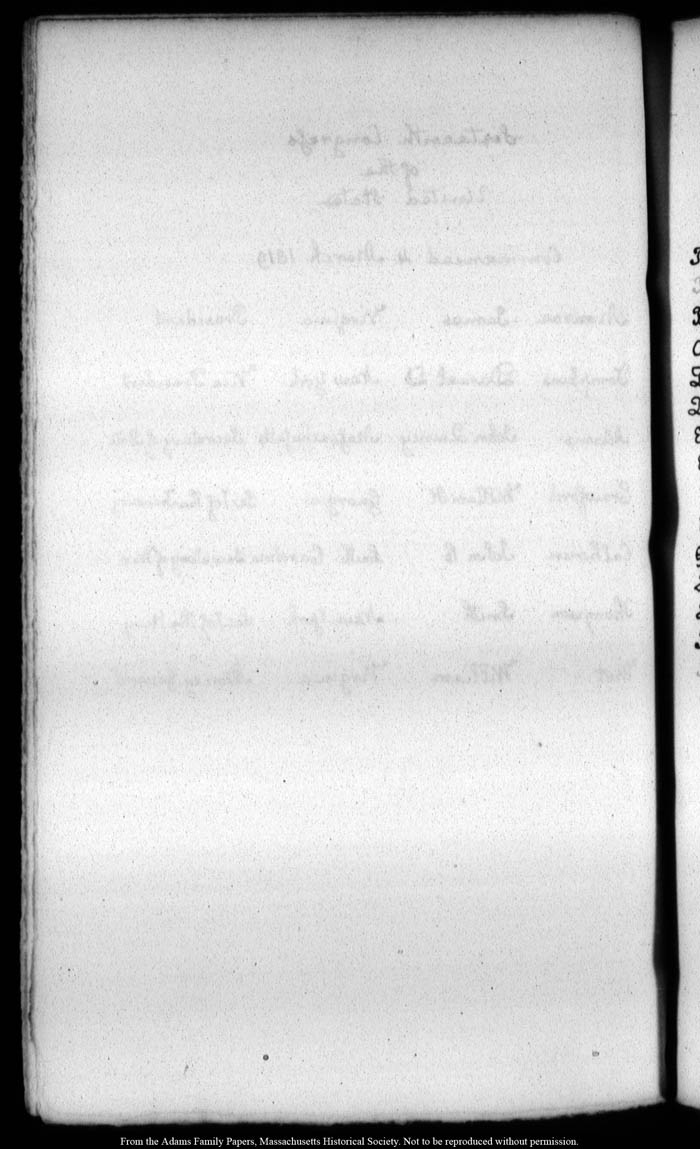 Sixteenth Congress
of the
United States
Commenced 4 March 1819
Monroe James Virginia President
Tompkins Daniel D New York Vice President
Adams John Quincy Massachusetts Secretary of State
Crawford William H Georgia
Calhoun John C South Carolina Secretary of War
Thompson Smith New York Secy of the Navy
Wirt William Virginia Attorney General
From the Adams Family Papers, Massachusetts Historical Society. Not to be reproduced without permission.